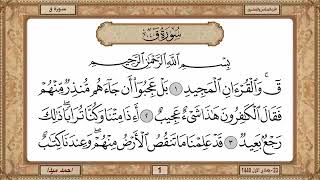 سورة ق
سُورَةُ قٓ
بِسْمِ ٱللَّهِ ٱلرَّحْمَٰنِ ٱلرَّحِيمِ
قٓ وَٱلْقُرْءَانِ ٱلْمَجِيدِ ١ بَلْ عَجِبُوٓا۟ أَن جَآءَهُم مُّنذِرٌ مِّنْهُمْ
فَقَالَ ٱلْكَٰفِرُونَ هَٰذَا شَىْءٌ عَجِيبٌ ٢ أَءِذَا مِتْنَا وَكُنَّا تُرَابًا ۖ ذَٰلِكَ
رَجْعٌۢ بَعِيدٌ ٣ قَدْ عَلِمْنَا مَا تَنقُصُ ٱلْأَرْضُ مِنْهُمْ ۖ وَعِندَنَا كِتَٰبٌ
1